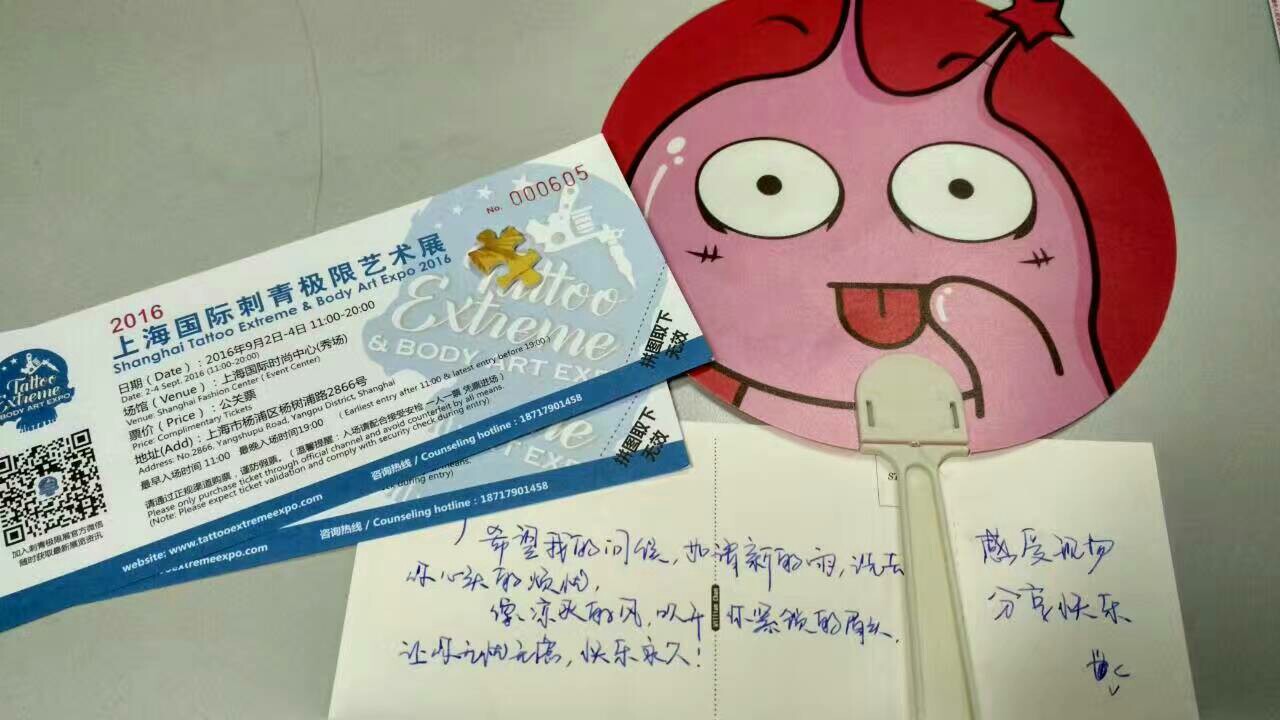 No. 000605
2016
上海国际刺青极限艺术展
Shanghai Tattoo Extreme & Body Art Expo 2016
日期（Date）：2016年9月2日-4日 11:00-20:00
Date: 2-4 Sept. 2016 (11:00-20:00)
场馆（Venue）：上海国际时尚中心(秀场)
Venue: Shanghai Fashion Center (Event Center)
票价（Price）：公关票
Price: Complimentary Tickets
地址(Add)：上海市杨浦区杨树浦路2866号
Address: No.2866, Yangshupu Road, Yangpu District, Shanghai
最早入场时间 11:00 最晚入场时间19:00 （Earliest entry after 11:00 & latest entry before 19:00.)
请通过正规渠道购票，谨防假票。（温馨提醒：入场请配合接受安检 一人一票 凭票进场）
Please only purchase ticket through official channel and avoid counterfeit by all means.
(Note: Please expect ticket validation and comply with security check during entry)
咨询热线 / Counseling hotline : 18717901458
website: www.tattooextremeexpo.com
Tattoo
Extreme
& BODY ART EXPO
加入刺青极限展官方微信
随时获取最新展览资讯
Tattoo
Extreme
& BODY ART EXP
拼图取下
无效
means.
during entry)
咨询热线 / Counseling hotline : 18717901458
xtremeexpo.com
拼图取下
无效
希望我的问候，如清新的雨，洗去
你心头的烦忧，
像凉爽的风，吹开你紧锁的眉头，
让你无忧无虑，快乐永久！
感受视物
分享快乐